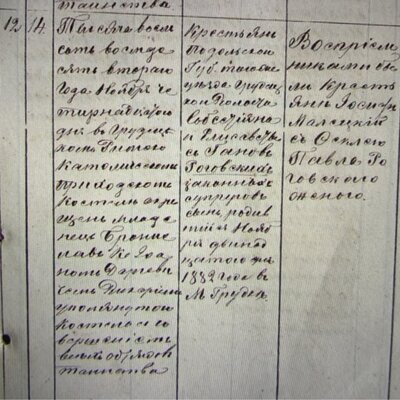 таинства
12 14. Тысяча восем
сотъ восемде
сятъ втораго
года Ноября че
тырнадцатого
дня въ Грудец
комъ Римско
Католическомъ
приходскомъ
Костелѣ окре
щенъ младе
нецъ Брони
славъ
викаріемъ
упомянутого
костела со
вершеніемъ
всѣхъ обрядовъ
таинства
Крестьянъ
Подольской
Губ.
уѣзда
кой Волости
и Елисаветы
съ Гановъ
Гоговскихъ
законныхъ
супруговъ
сынъ, родив
шійся Нояб
ря двенад
цатого дня
1882 года въ
М. Грудекъ.
Воспріем
никами бы
ли Кресть
яни Іосифъ
Малецкій
съ Феклею
Павла Ро
говского
женою.